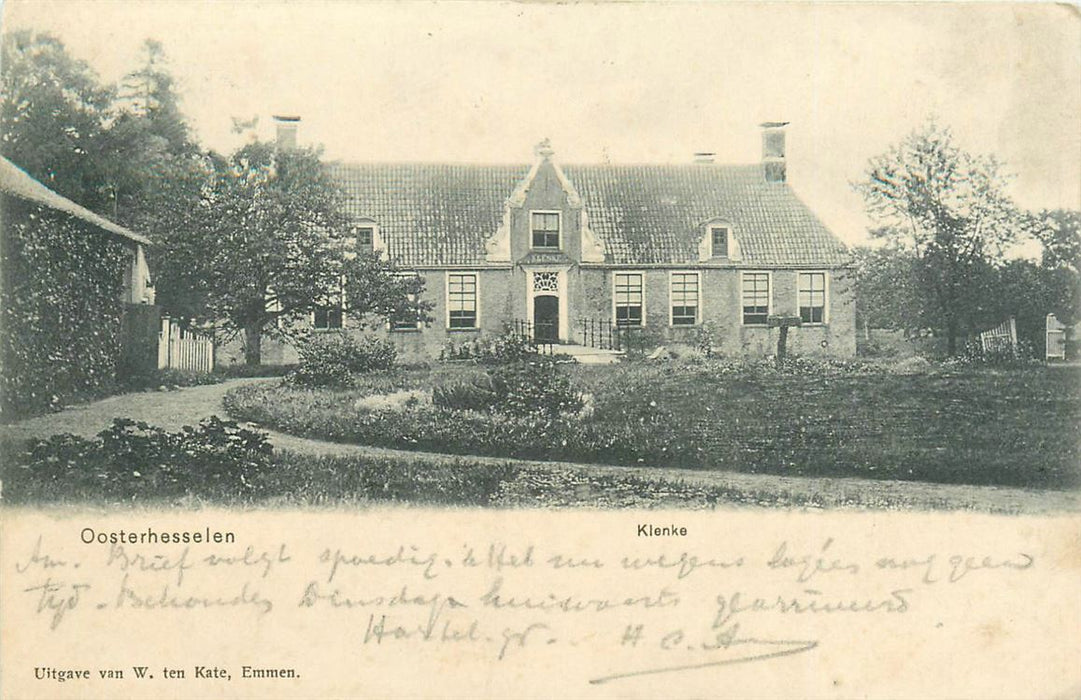 KLENKE
Oosterhesselen
Klenke
Am. Brief volgt spoedig. 'k Heb nu wegens logées nog geen
tijd. Behouden Dinsdag huiswaarts gearriveerd
Hartel. gr. H
Uitgave van W. ten Kate, Emmen.